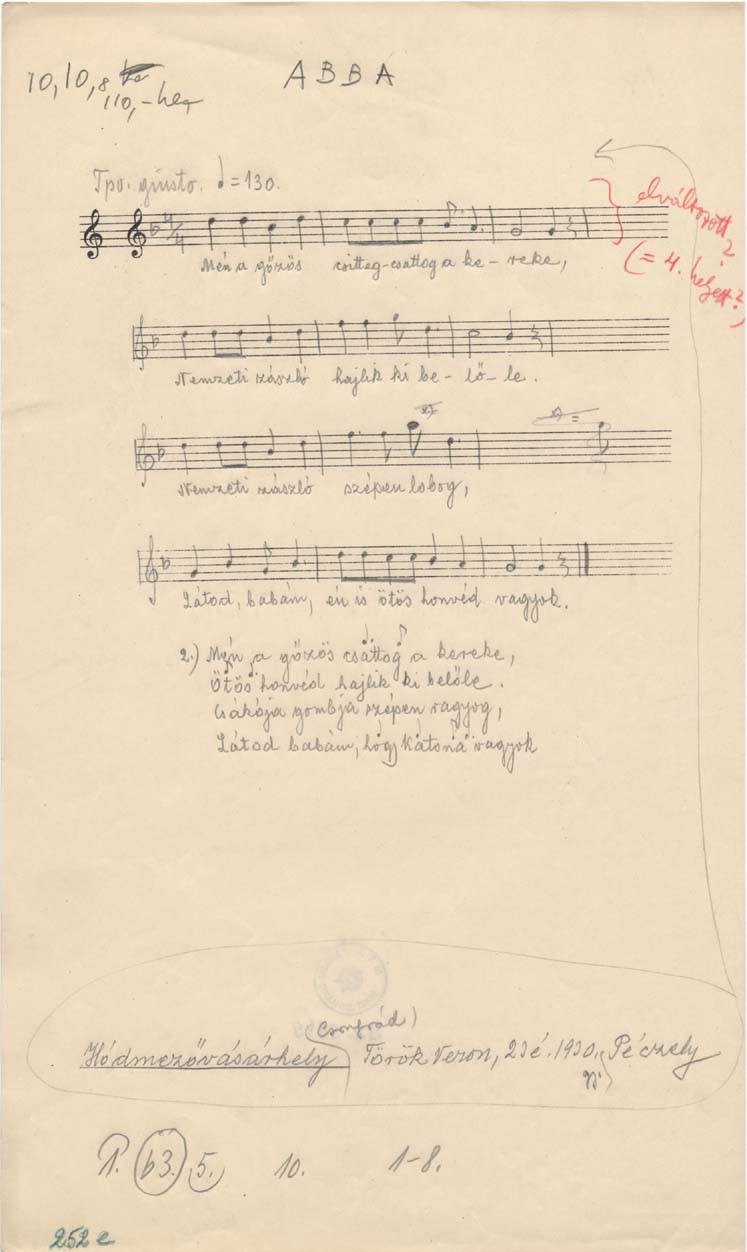 10, 10, 8
110, – hez
ABBA
Tpo. giusto. ♩ = 130.
4/4
elváltozott?
(= 4. helyett?)
Mén a gőzös csitteg-csattog a ke – reke,
Nemzeti zászló hajlik ki be – lő – le.
x)
x) =
Nemzeti zászló szépen lobog,
Látod, babám, én is ötös honvéd vagyok.
2.) Mén a gőzös csattog a kereke,
Ötös honvéd hajlik ki belőle.
Csákója gombja szépen ragyog,
Látod babám, hogy katona vagyok
(Csongrád)
Hódmezővásárhely Török Veron, 23 é. 1930, Péczely
P. 63. 5. 10. 1-8.
252 e